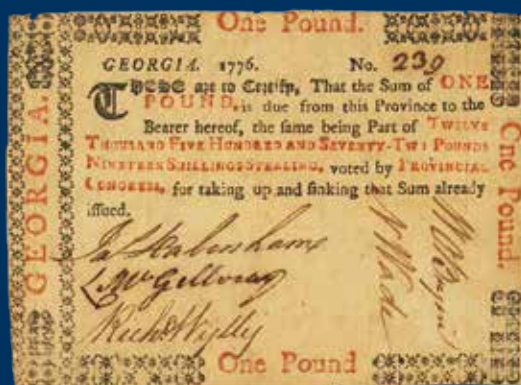 One Pound.
GEORGIA. 1776. No. 239
THESE are to Certify, That the Sum of ONE
POUND, is due from this Province to the
Bearer hereof, the same being Part of TWELVE
THOUSAND FIVE HUNDRED AND SEVENTY-TWO POUNDS
NINETEEN SHILLINGS STERLING, voted by PROVINCIAL
CONGRESS, for taking up and sinking that Sum already
issued.
Jas Habersham
L McGillivray
Richd Wylly
N Wade
One Pound
GEORGIA.
One Pound.